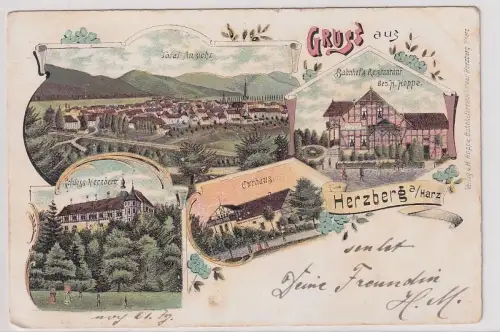 Gruss aus
Total Ansicht
Bahnhof's Restaurant
Bes. H. Hoppe.
Schloss Herzberg
Curhaus.
Herzberg a/Harz
Verlag v. H. Hoppe, Bahnhofsrestaurateur, Herzberg Harz
sendet
Deine Freundin
H. M.